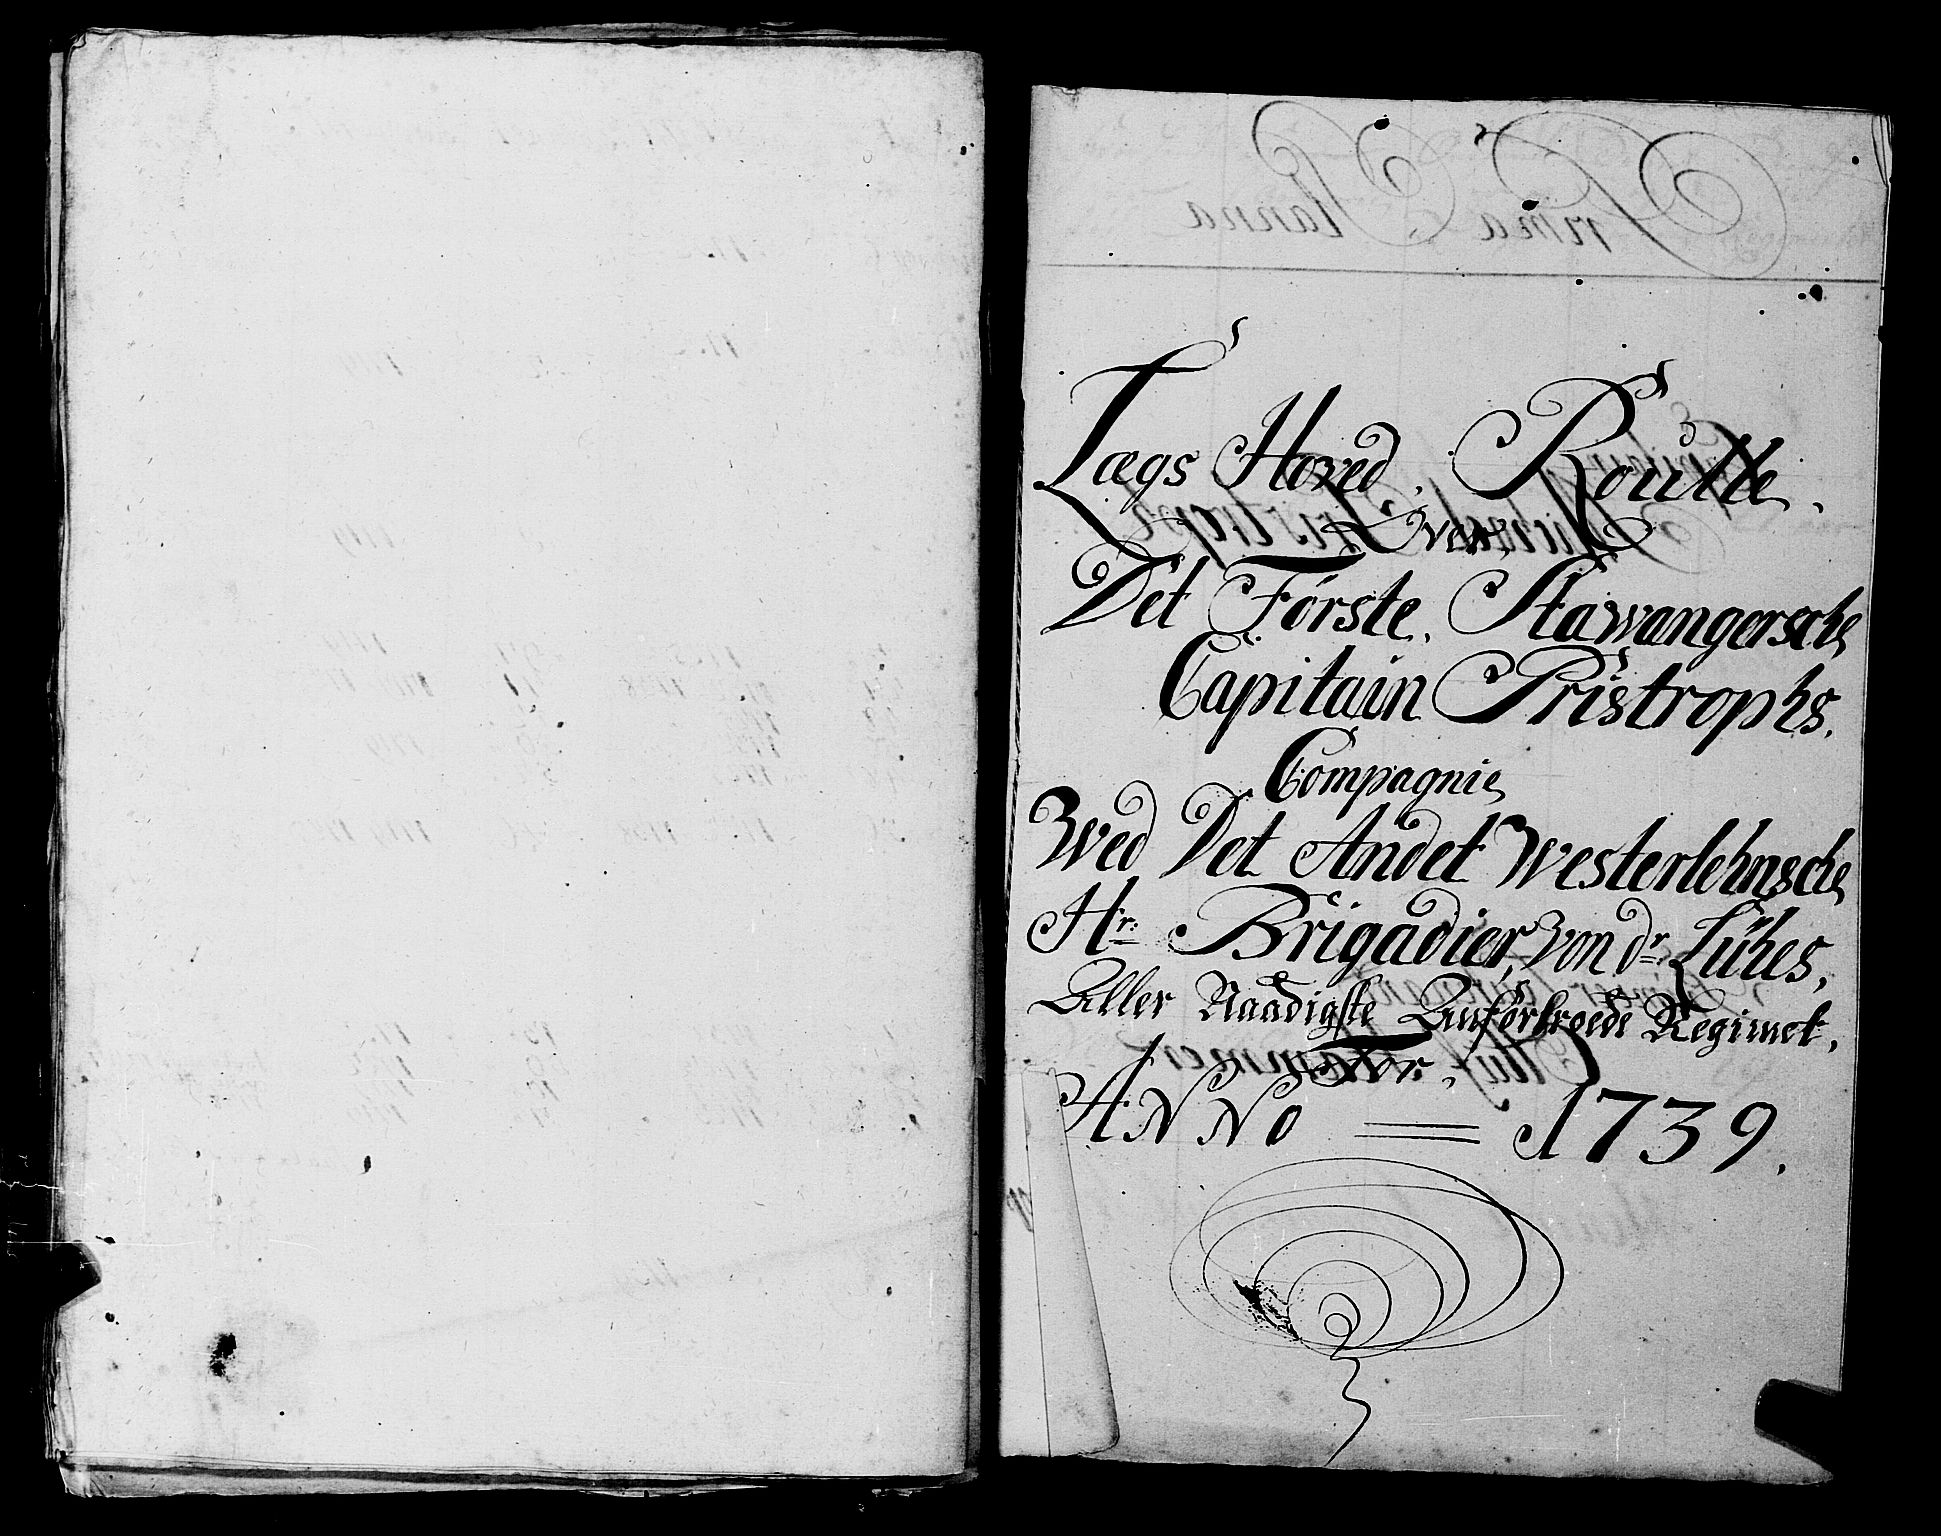 Lægs Hoved, Roulle,
Over,
Det Förste, Stawangersche
Capitain Pristrophs,
Compagnie
Wed Det Andet Westerlehnsche
Hr: Brigadier, von dr Lühes,
Aller Naadigste Anförtroede Regimet,
For,
ANNO = 1739.